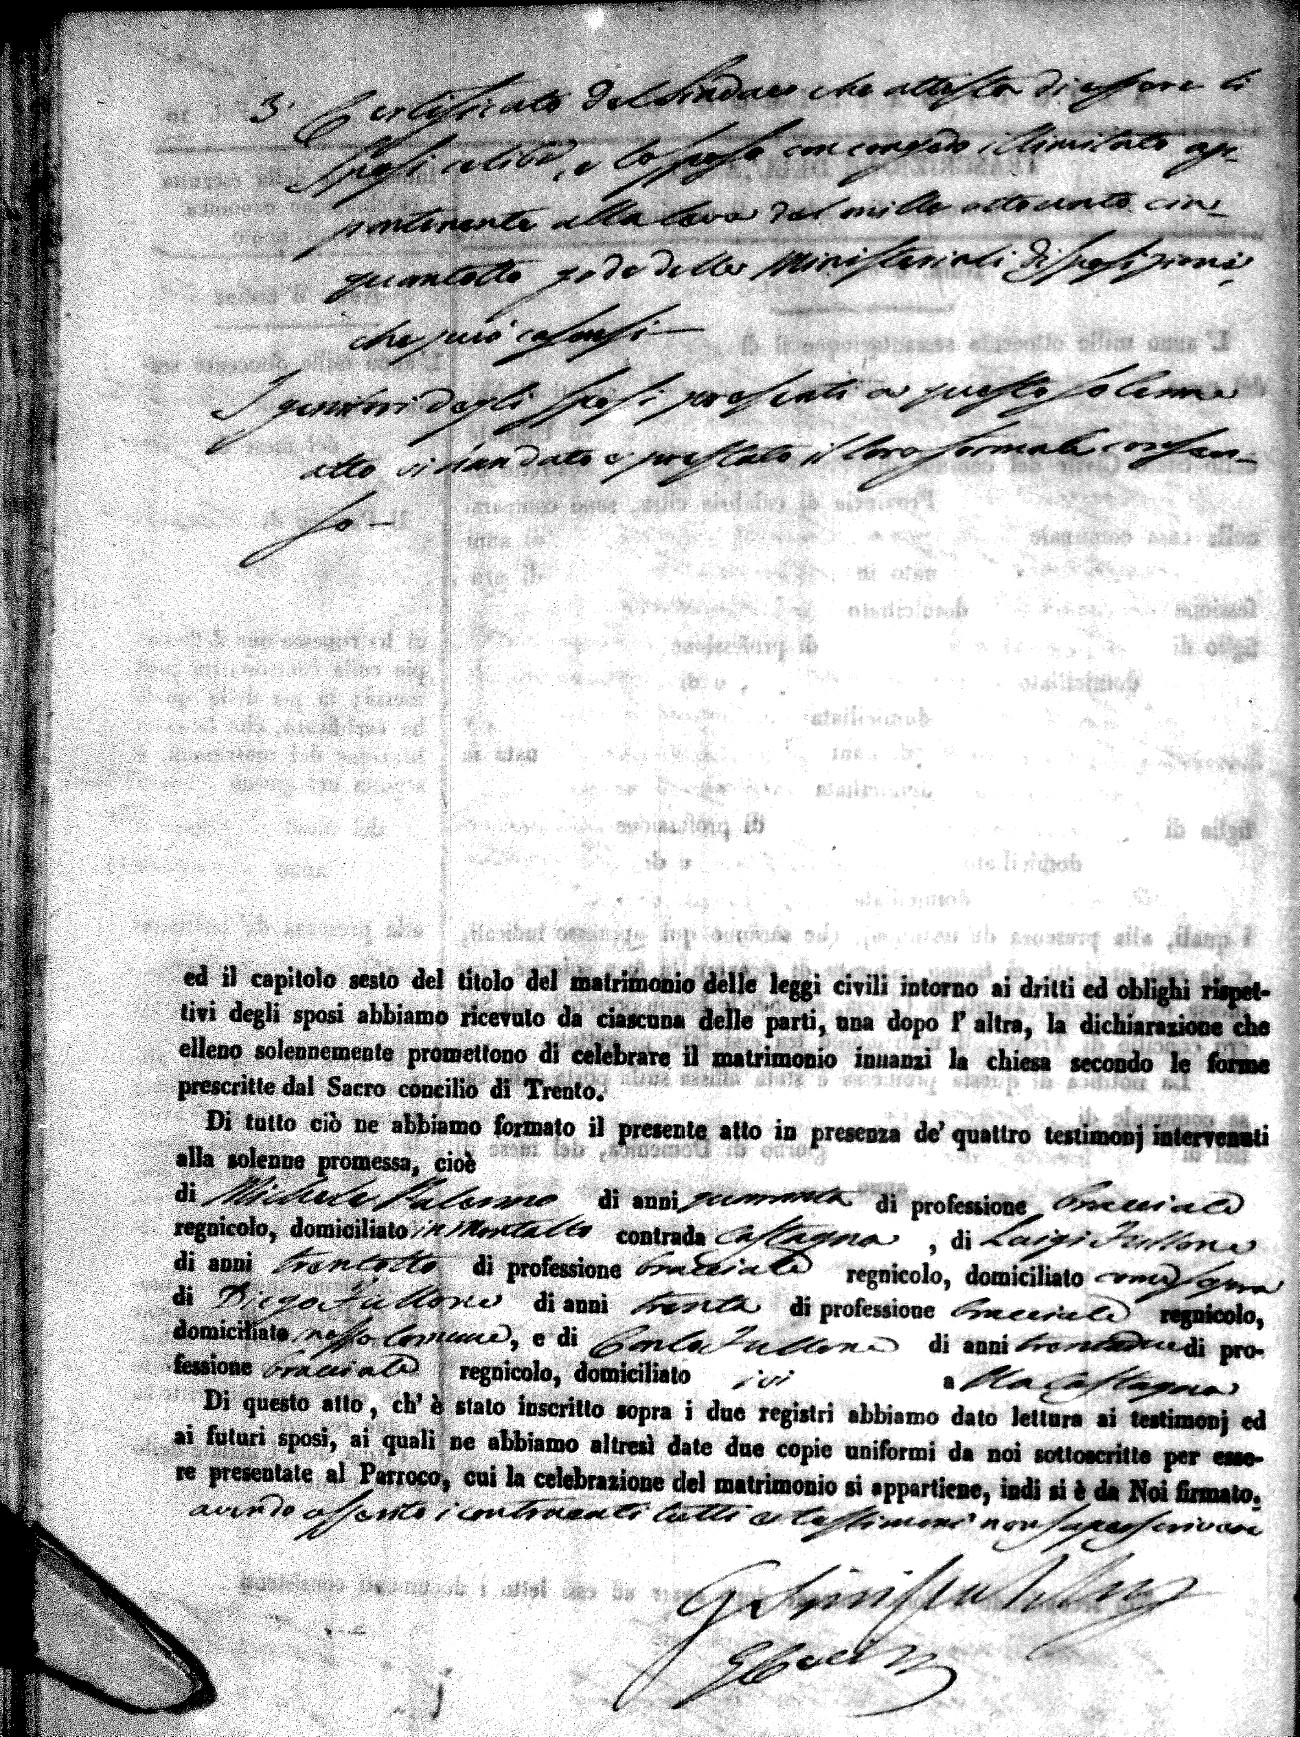 3° Certificato del Sindaco che attesta di essere li
Sposi celibi, e lo sposo con congedo illimitato ap-
partenente alla leva del mille ottocento cin-
quantotto gode delle Ministeriali disposizioni,
che può casarsi—
I genitori degli sposi presenti a questo solenne
atto vi han dato e prestato il loro formale consen-
so—
ed il capitolo sesto del titolo del matrimonio delle leggi civili intorno ai dritti ed obblighi rispet-
tivi degli sposi abbiamo ricevuto da ciascuna delle parti, una dopo l' altra, la dichiarazione che
elleno solennemente promettono di celebrare il matrimonio innanzi la chiesa secondo le forme
prescritte dal Sacro concilio di Trento.
Di tutto ciò ne abbiamo formato il presente atto in presenza de' quattro testimonj intervenuti
alla solenne promessa, cioè
di Michele Palermo di anni di professione bracciale
regnicolo, domiciliato in contrada Castagna , di Luigi Fullone
di anni trentotto di professione bracciale regnicolo, domiciliato come sopra
di Diego Fullone di anni trenta di professione bracciale regnicolo,
domiciliato nesso Comune, e di Carlo Fullone di anni trentadue di pro-
fessione bracciale regnicolo, domiciliato ivi a lla Castagna
Di questo atto, ch' è stato inscritto sopra i due registri abbiamo dato lettura ai testimonj ed
ai futuri sposi, ai quali ne abbiamo altresì date due copie uniformi da noi sottoscritte per esse-
re presentate al Parroco, cui la celebrazione del matrimonio si appartiene, indi si è da Noi firmato,
avendo asserito i contraenti tutti e testimoni non saper scrivere